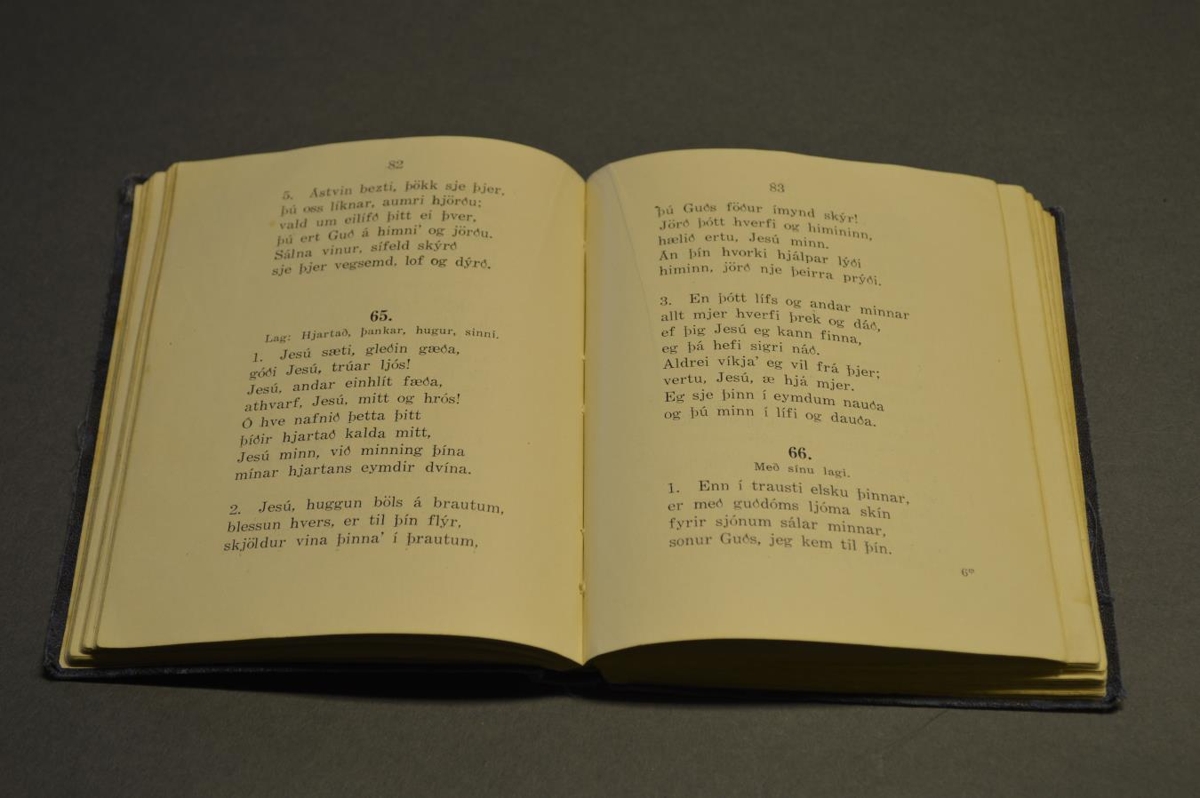 82
5. Ástvin bezti, þökk sje þjer.
Þú oss líknar, aumri hjörðu;
vald um eilífð þitt ei þver,
þú ert Guð á himni' og jörðu.
Sálna vinur, sífeld skýrð
sje þjer vegsemd, lof og dýrð.
65.
Lag: Hjartað, þankar, hugur, sinni.
1. Jesú sæti, gleðin gæða,
góði Jesú, trúar ljós!
Jesú, andar einhlít fæða,
athvarf, Jesú, mitt og hrós!
Ó hve nafnið þetta þitt
þíðir hjartað kalda mitt,
Jesú minn, við minning þína
mínar hjartans eymdir dvína.
2. Jesú, huggun böls á brautum,
blessun hvers, er til þín flýr,
skjöldur vina þinna' í þrautum,
83
Þú Guðs föður ímynd skýr!
Jörð þótt hverfi og himininn,
hælið ertu, Jesú minn.
Án þín hvorki hjálpar lýði
himinn, jörð nje þeirra prýði.
3. En þótt lífs og andar minnar
allt mjer hverfi þrek og dáð,
ef þig Jesú eg kann finna,
eg þá hefi sigri náð.
Aldrei víkja' eg vil frá þjer;
vertu, Jesú, æ hjá mjer.
Eg sje þinn í eymdum nauða
og þú minn í lífi og dauða.
66.
Með sínu lagi.
1. Enn í trausti elsku þinnar,
er með guðdóms ljóma skín
fyrir sjónum sálar minnar,
sonur Guðs, jeg kem til þín.
6*